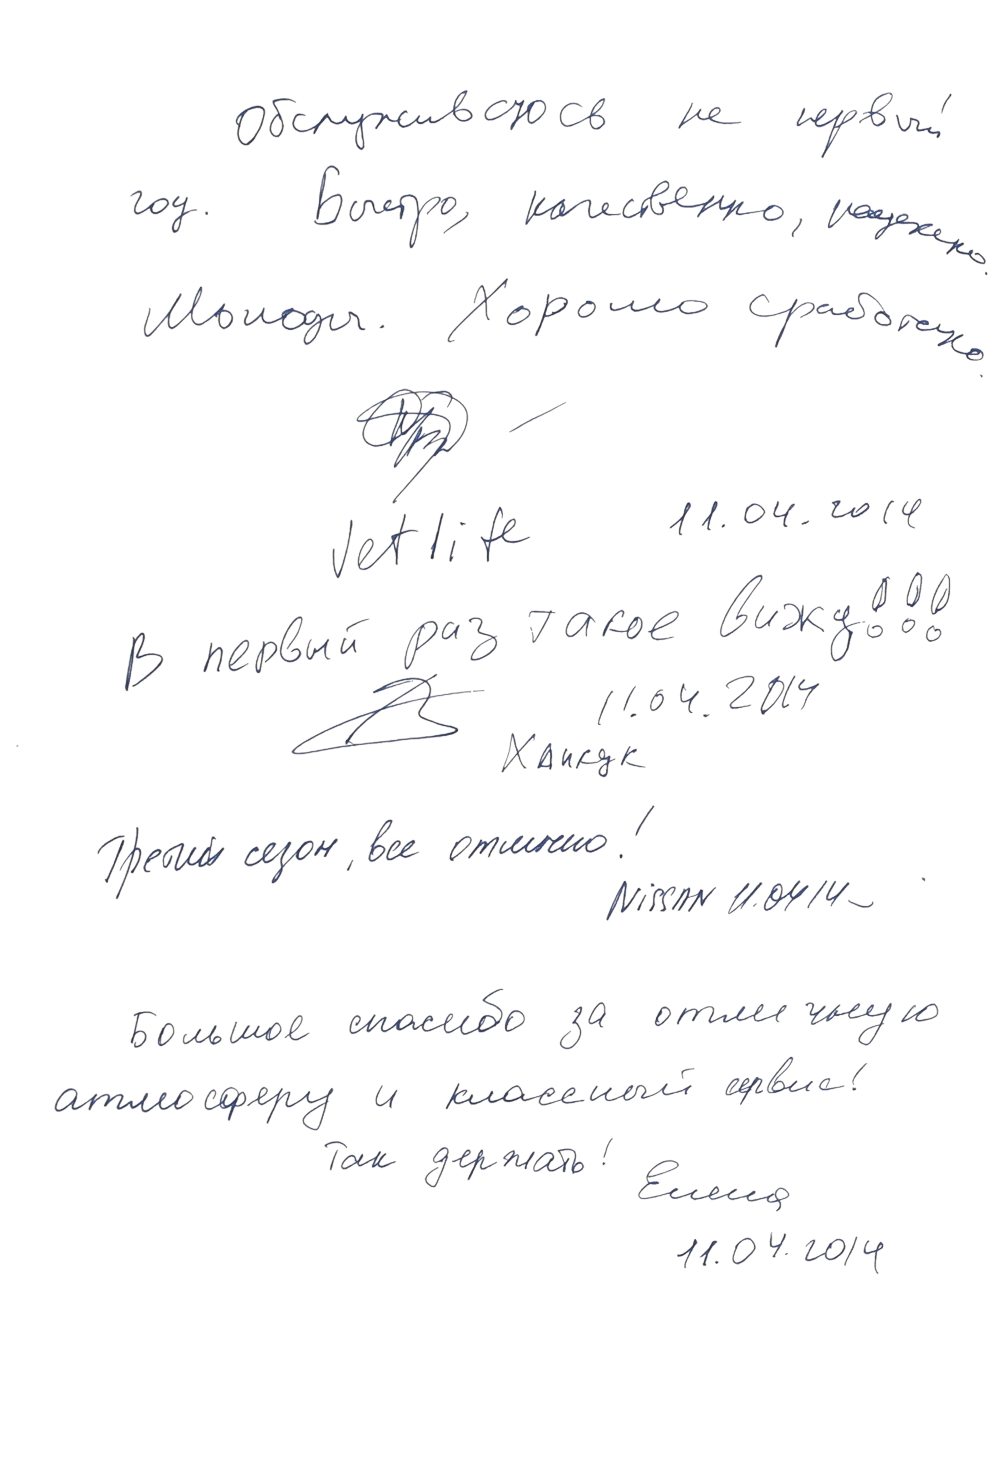 Обслуживаюсь не первый
год. Быстро, качественно, надежно.
Молодцы. Хорошо сработано.
Jetlife 11.04.2014
В первый раз такое вижу!!!
11.04.2014
Третий сезон, все отлично!
Nissan 11.04 14
Большое спасибо за отличную
атмосферу и классный сервис!
Так держать!
Елена
11.04.2014